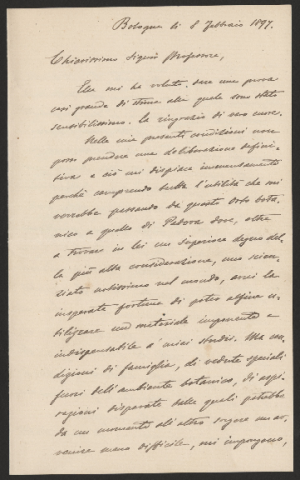 Bologna li 8 Febbraio 1897.
Chiarissimo Signor Professore,
Ella mi ha voluto dare una prova
così grande di stima alla quale sono stato
sensibilissimo. La ringrazio di vero cuore.
Nelle mie presenti condizioni non
posso prendere una deliberazione defini-
tiva e ciò mi dispiace immensamente
perchè comprendo tutta l'utilità che mi
verrebbe passando da questo Orto bota-
nico a quello di Padova dove, oltre
a trovare in lei un Superiore degno del-
la più alta considerazione, uno scien-
ziato notissimo nel mondo, avrei la
insperata fortuna di poter alfine u-
tilizzare un materiale imponente e
indispensabile a' miei studi. Ma con-
dizioni di famiglia, di vedute speciali
fuori dell'ambiente botanico, di aspi-
razioni disparate dalle quali potrebbe
da un momento all'altro sorgere un av-
venire meno difficile, mi impongono,